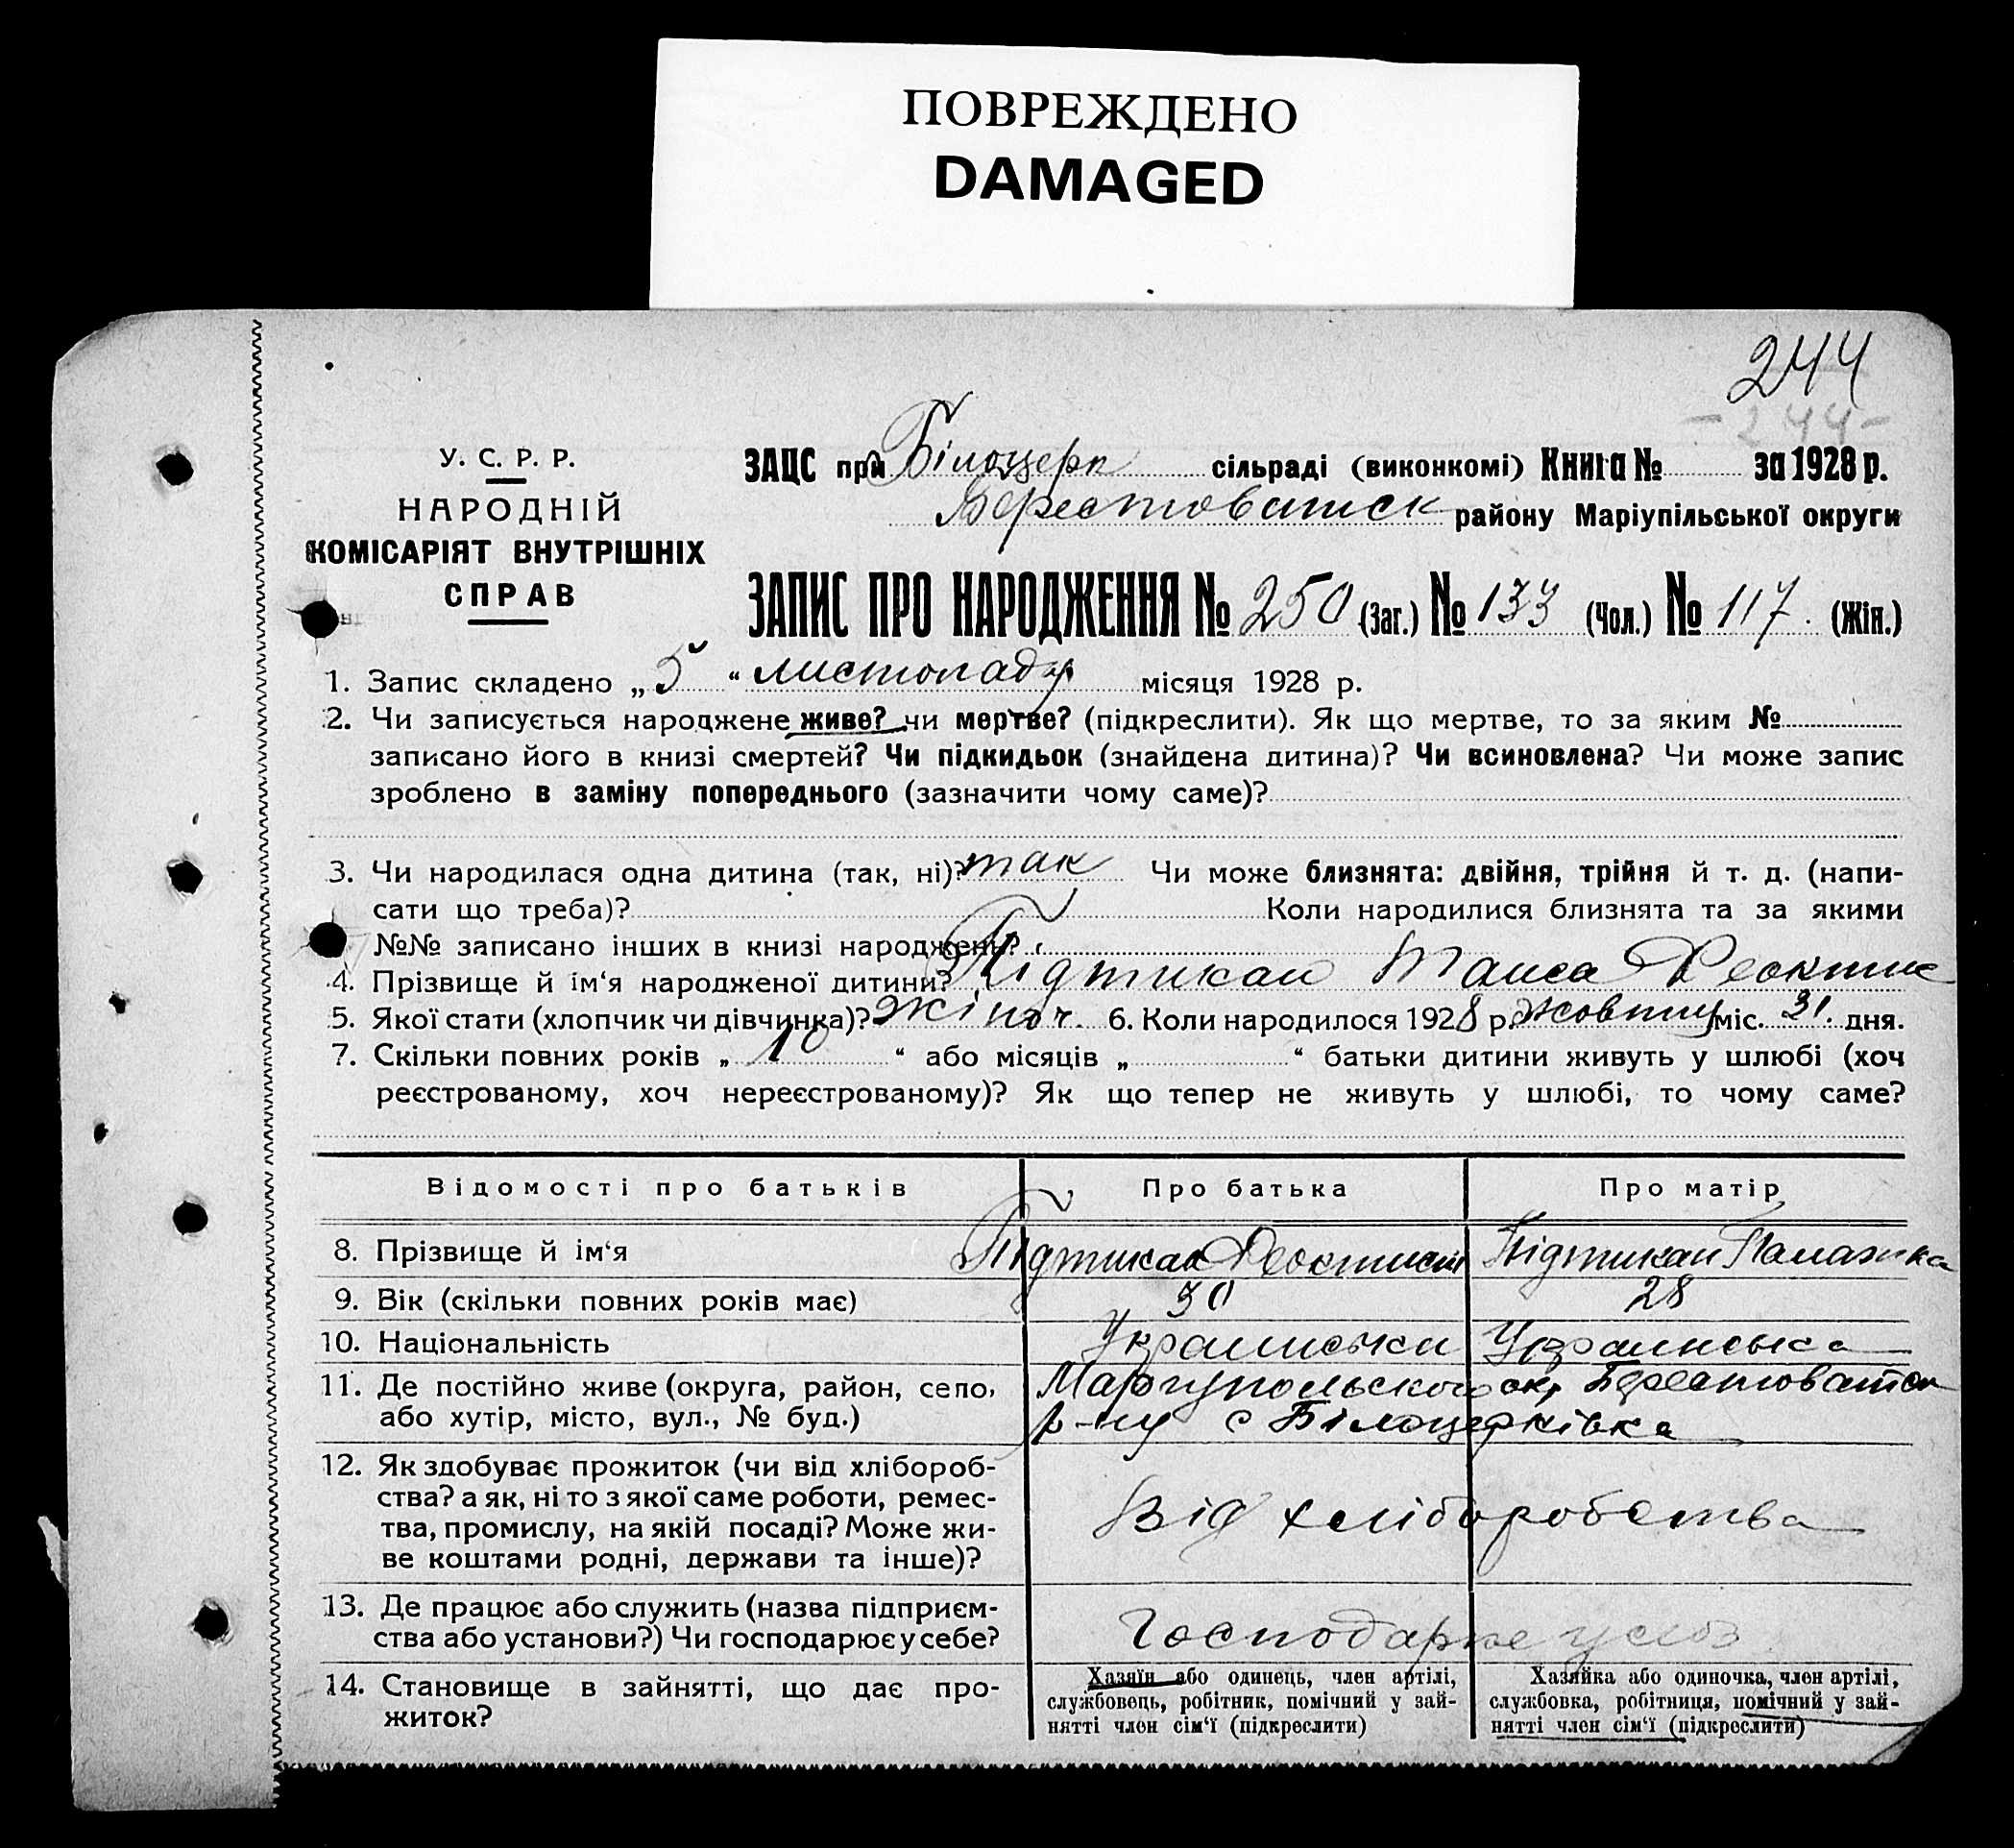 ПОВРЕЖДЕНО
DAMAGED
244
-244-
У. С. Р. Р.
НАРОДНІЙ
КОМІСАРІЯТ ВНУТРІШНІХ
СПРАВ
ЗАЦС при Білоцерк сільраді (виконкомі) Книга № за 1928 р.
Берестоватск району Маріупільської округи
ЗАПИС ПРО НАРОДЖЕННЯ № 250 (Заг.) № 133 (Чол.) № 117. (Жін.)
1. Запис складено „ 5 “ листопаду місяця 1928 р.
2. Чи записується народжене живе? чи мертве? (підкреслити). Як що мертве, то за яким №
записано його в книзі смертей? Чи підкидьок (знайдена дитина)? Чи всиновлена? Чи може запис
зроблено в заміну попереднього (зазначити чому саме)?
3. Чи народилася одна дитина (так, ні)? так Чи може близнята: двійня, трійня й т. д. (напи-
сати що треба)? Коли народилися близнята та за якими
№№ записано інших в книзі народжень?
4. Прізвище й ім‘я народженої дитини? Підтикан Таиса Феоктис
5. Якої стати (хлопчик чи дівчинка)? жіноч. 6. Коли народилося 1928 р. жовтня міс. 31. дня.
7. Скільки повних років „ 10 “ або місяців „ “ батьки дитини живуть у шлюбі (хоч
реєстрованому, хоч нереєстрованому)? Як що тепер не живуть у шлюбі, то чому саме?
Відомості про батьків Про батька Про матір
8. Прізвище й ім‘я Підтикан Феоктист Підтикан Палажка
9. Вік (скільки повних років має) 30 28
10. Національність Украинськи Украинська
11. Де постійно живе (округа, район, село, Мариупольського ок, Берестоватск
або хутір, місто, вул., № буд.) р-ну с Білоцерківка
12. Як здобуває прожиток (чи від хлібороб-
ства? а як, ні то з якої саме роботи, ремес-
тва, промислу, на якій посаді? Може жи-
ве коштами родні, держави та інше)?
Від хліборобства
13. Де працює або служить (назва підприєм-
ства або установи?) Чи господарює у себе?
Господарює у себ
14. Становище в зайнятті, що дає про-
житок?
Хазяїн або одинець, член артілі,
службовець, робітник, помічний у зай-
нятті член сім‘ї (підкреслити)
Хазяйка або одиночка, член артілі,
службовка, робітниця, помічний у зай-
нятті член сім‘ї (підкреслити)